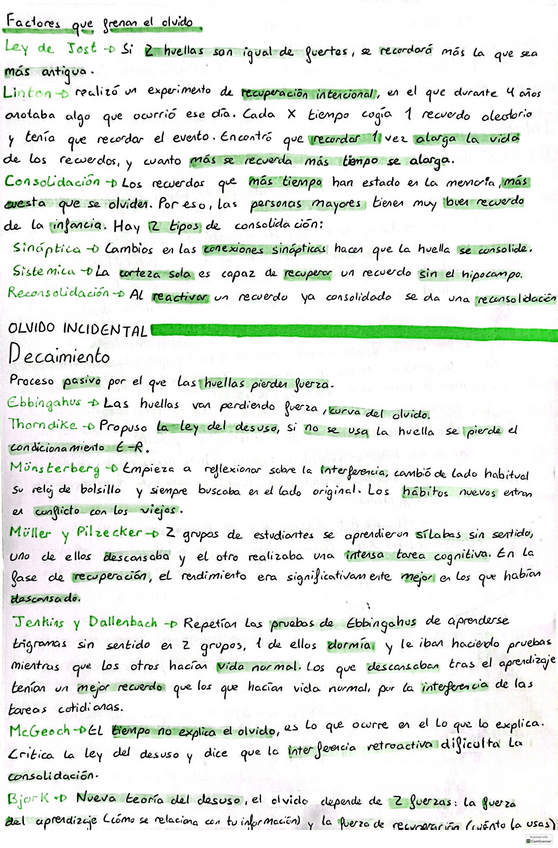 Factores que frenan el olvido
Ley de Jost → Si 2 huellas son igual de fuertes, se recordará más la que sea
más antigua.
Linton → realizó un experimento de recuperación intencional, en el que durante 4 años
anotaba algo que ocurrió ese día. Cada X tiempo cogía 1 recuerdo aleatorio
y tenía que recordar el evento. Encontró que recordar 1 vez alarga la vida
de los recuerdos, y cuanto más se recuerda más tiempo se alarga.
Consolidación → Los recuerdos que más tiempo han estado en la memoria, más
cuesta que se olviden. Por eso, las personas mayores tienen muy buen recuerdo
de la infancia. Hay 2 tipos de consolidación:
Sináptica → Cambios en las conexiones sinápticas hacen que la huella se consolide.
Sistemica → La corteza sola es capaz de recuperar un recuerdo sin el hipocampo.
Reconsolidación → Al reactivar un recuerdo ya consolidado se da una reconsolidación
OLVIDO INCIDENTAL
Decaimiento
Proceso pasivo por el que las huellas pierden fuerza.
Ebbinghaus → Las huellas van perdiendo fuerza, curva del olvido.
Thorndike → Propuso la ley del desuso, si no se usa la huella se pierde el
condicionamiento E-R.
Münsterberg → Empieza a reflexionar sobre la Interferencia, cambió de lado habitual
su reloj de bolsillo y siempre buscaba en el lado original. Los hábitos nuevos entran
en conflicto con los viejos.
Müller y Pilzecker → 2 grupos de estudiantes se aprendieron sílabas sin sentido,
uno de ellos descansaba y el otro realizaba una intensa tarea cognitiva. En la
fase de recuperación, el rendimiento era significativamente mejor en los que habían
descansado.
Jenkins y Dallenbach → Repetían las pruebas de Ebbingahus de aprenderse
trigramas sin sentido en 2 grupos, 1 de ellos dormía y le iban haciendo pruebas
mientras que los otros hacían vida normal. Los que descansaban tras el aprendizaje
tenían un mejor recuerdo que los que hacían vida normal, por la interferencia de las
tareas cotidianas.
McGeoch → El tiempo no explica el olvido, es lo que ocurre en el lo que lo explica.
Critica la ley del desuso y dice que la interferencia retroactiva dificulta la
consolidación.
Bjork → Nueva teoría del desuso, el olvido depende de 2 fuerzas: la fuerza
del aprendizaje (cómo se relaciona con tu información) y la fuerza de recuperación (cuánto la usas)
CamScanner